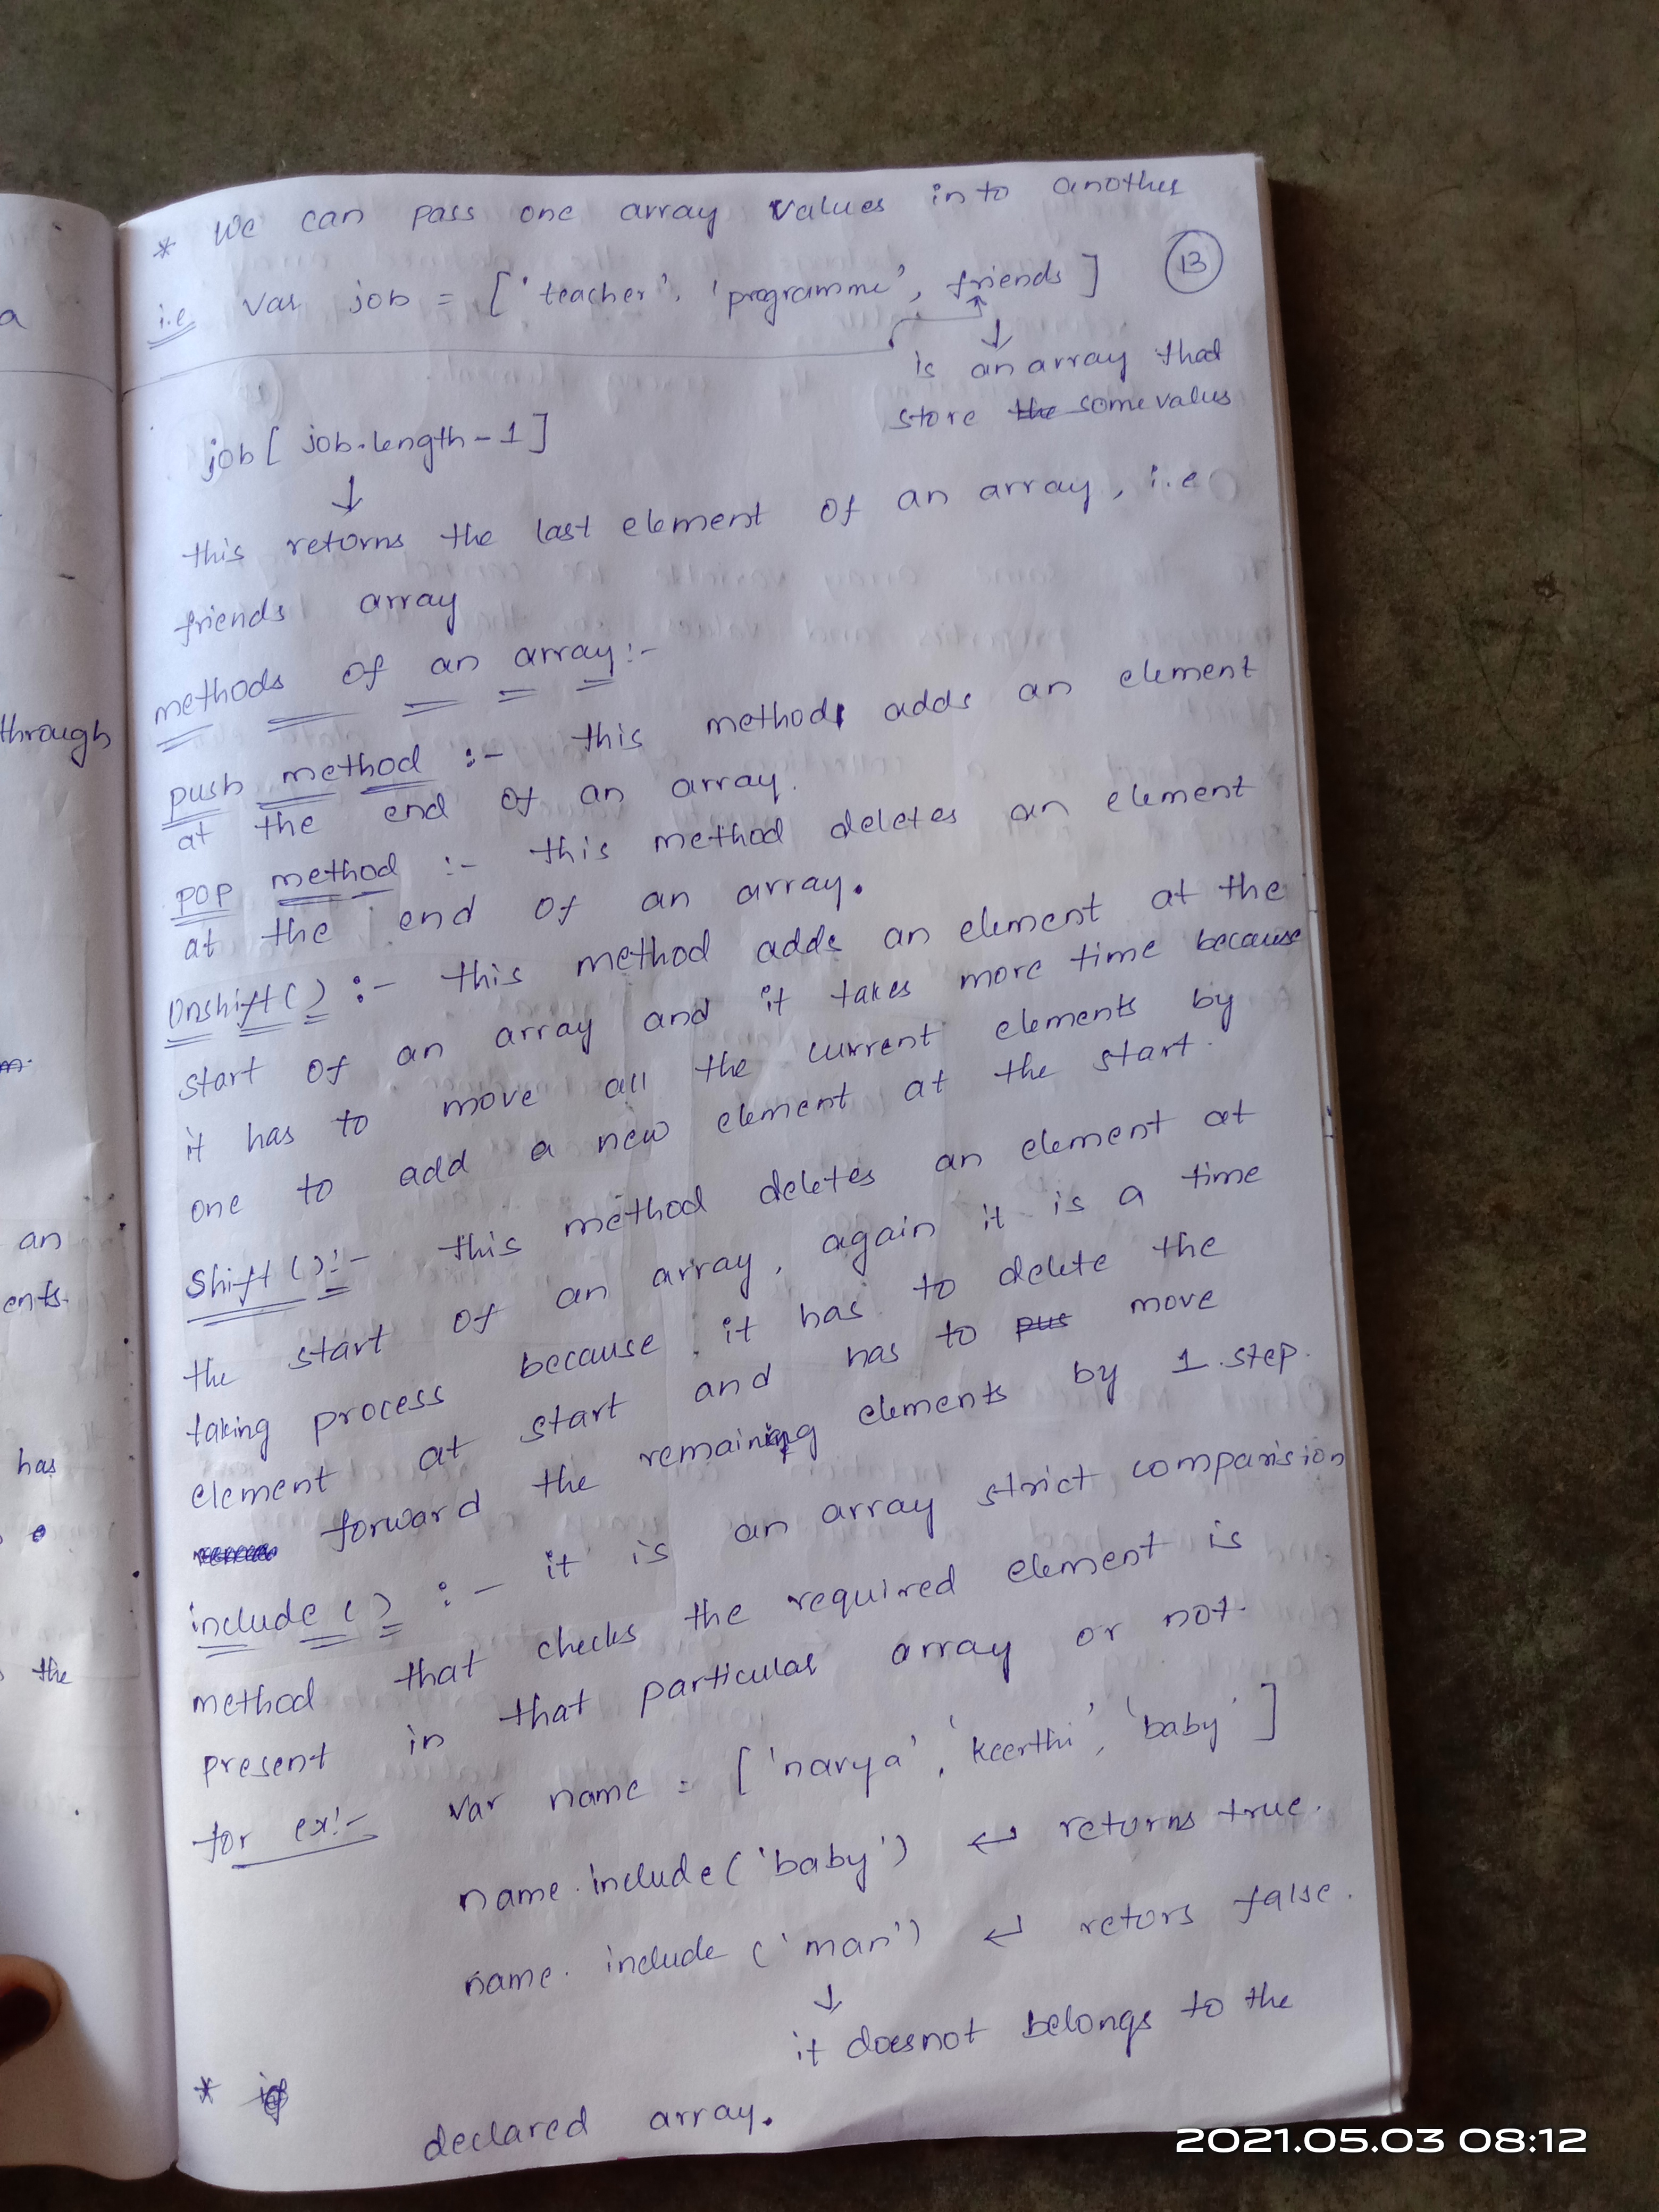 * We can pass one array values into another
13
i.e var job = ['teacher', 'programme', friends]
is an array that
store the some values
job[ job.length-1]
↓
this returns the last element of an array, i.e
friends array
methods of an array:-
push method :- this method adds an element
at the end of an array.
pop method :- this method deletes an element
at the end of an array.
Unshift() :- this method adds an element at the
start of an array and it takes more time because
it has to move all the current elements by
one to add a new element at the start.
Shift():- this method deletes an element at
the start of an array, again it is a time
taking process because it has to delete the
element at start and has to pus move
forward the remaining elements by 1 step.
include() :- it is an array strict comparision
method that checks the required element is
present in that particular array or not.
for ex:- var name = ['navya', 'keerthi', 'baby']
name.include('baby') ↵ returns true.
name. include ('man') ↵ retors false.
↓
it doesnot belongs to the
*
declared array.
a
through
m.
an
ents.
has
e
the
2021.05.03 08:12